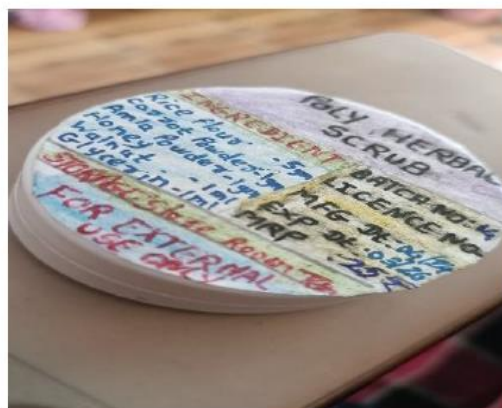 POLY HERBAL
SCRUB
INGREDIENT
Rice flour -5gm
Carrot Powder-1gm
Amla Powder-1gm
Honey -1ml
Walnut
Glycerin-1ml
BATCH NO:
LICENCE NO
MFG Dt:
EXP Dt: 03/26
MRP :25
STORAGE:
FOR EXTERNAL
USE ONLY